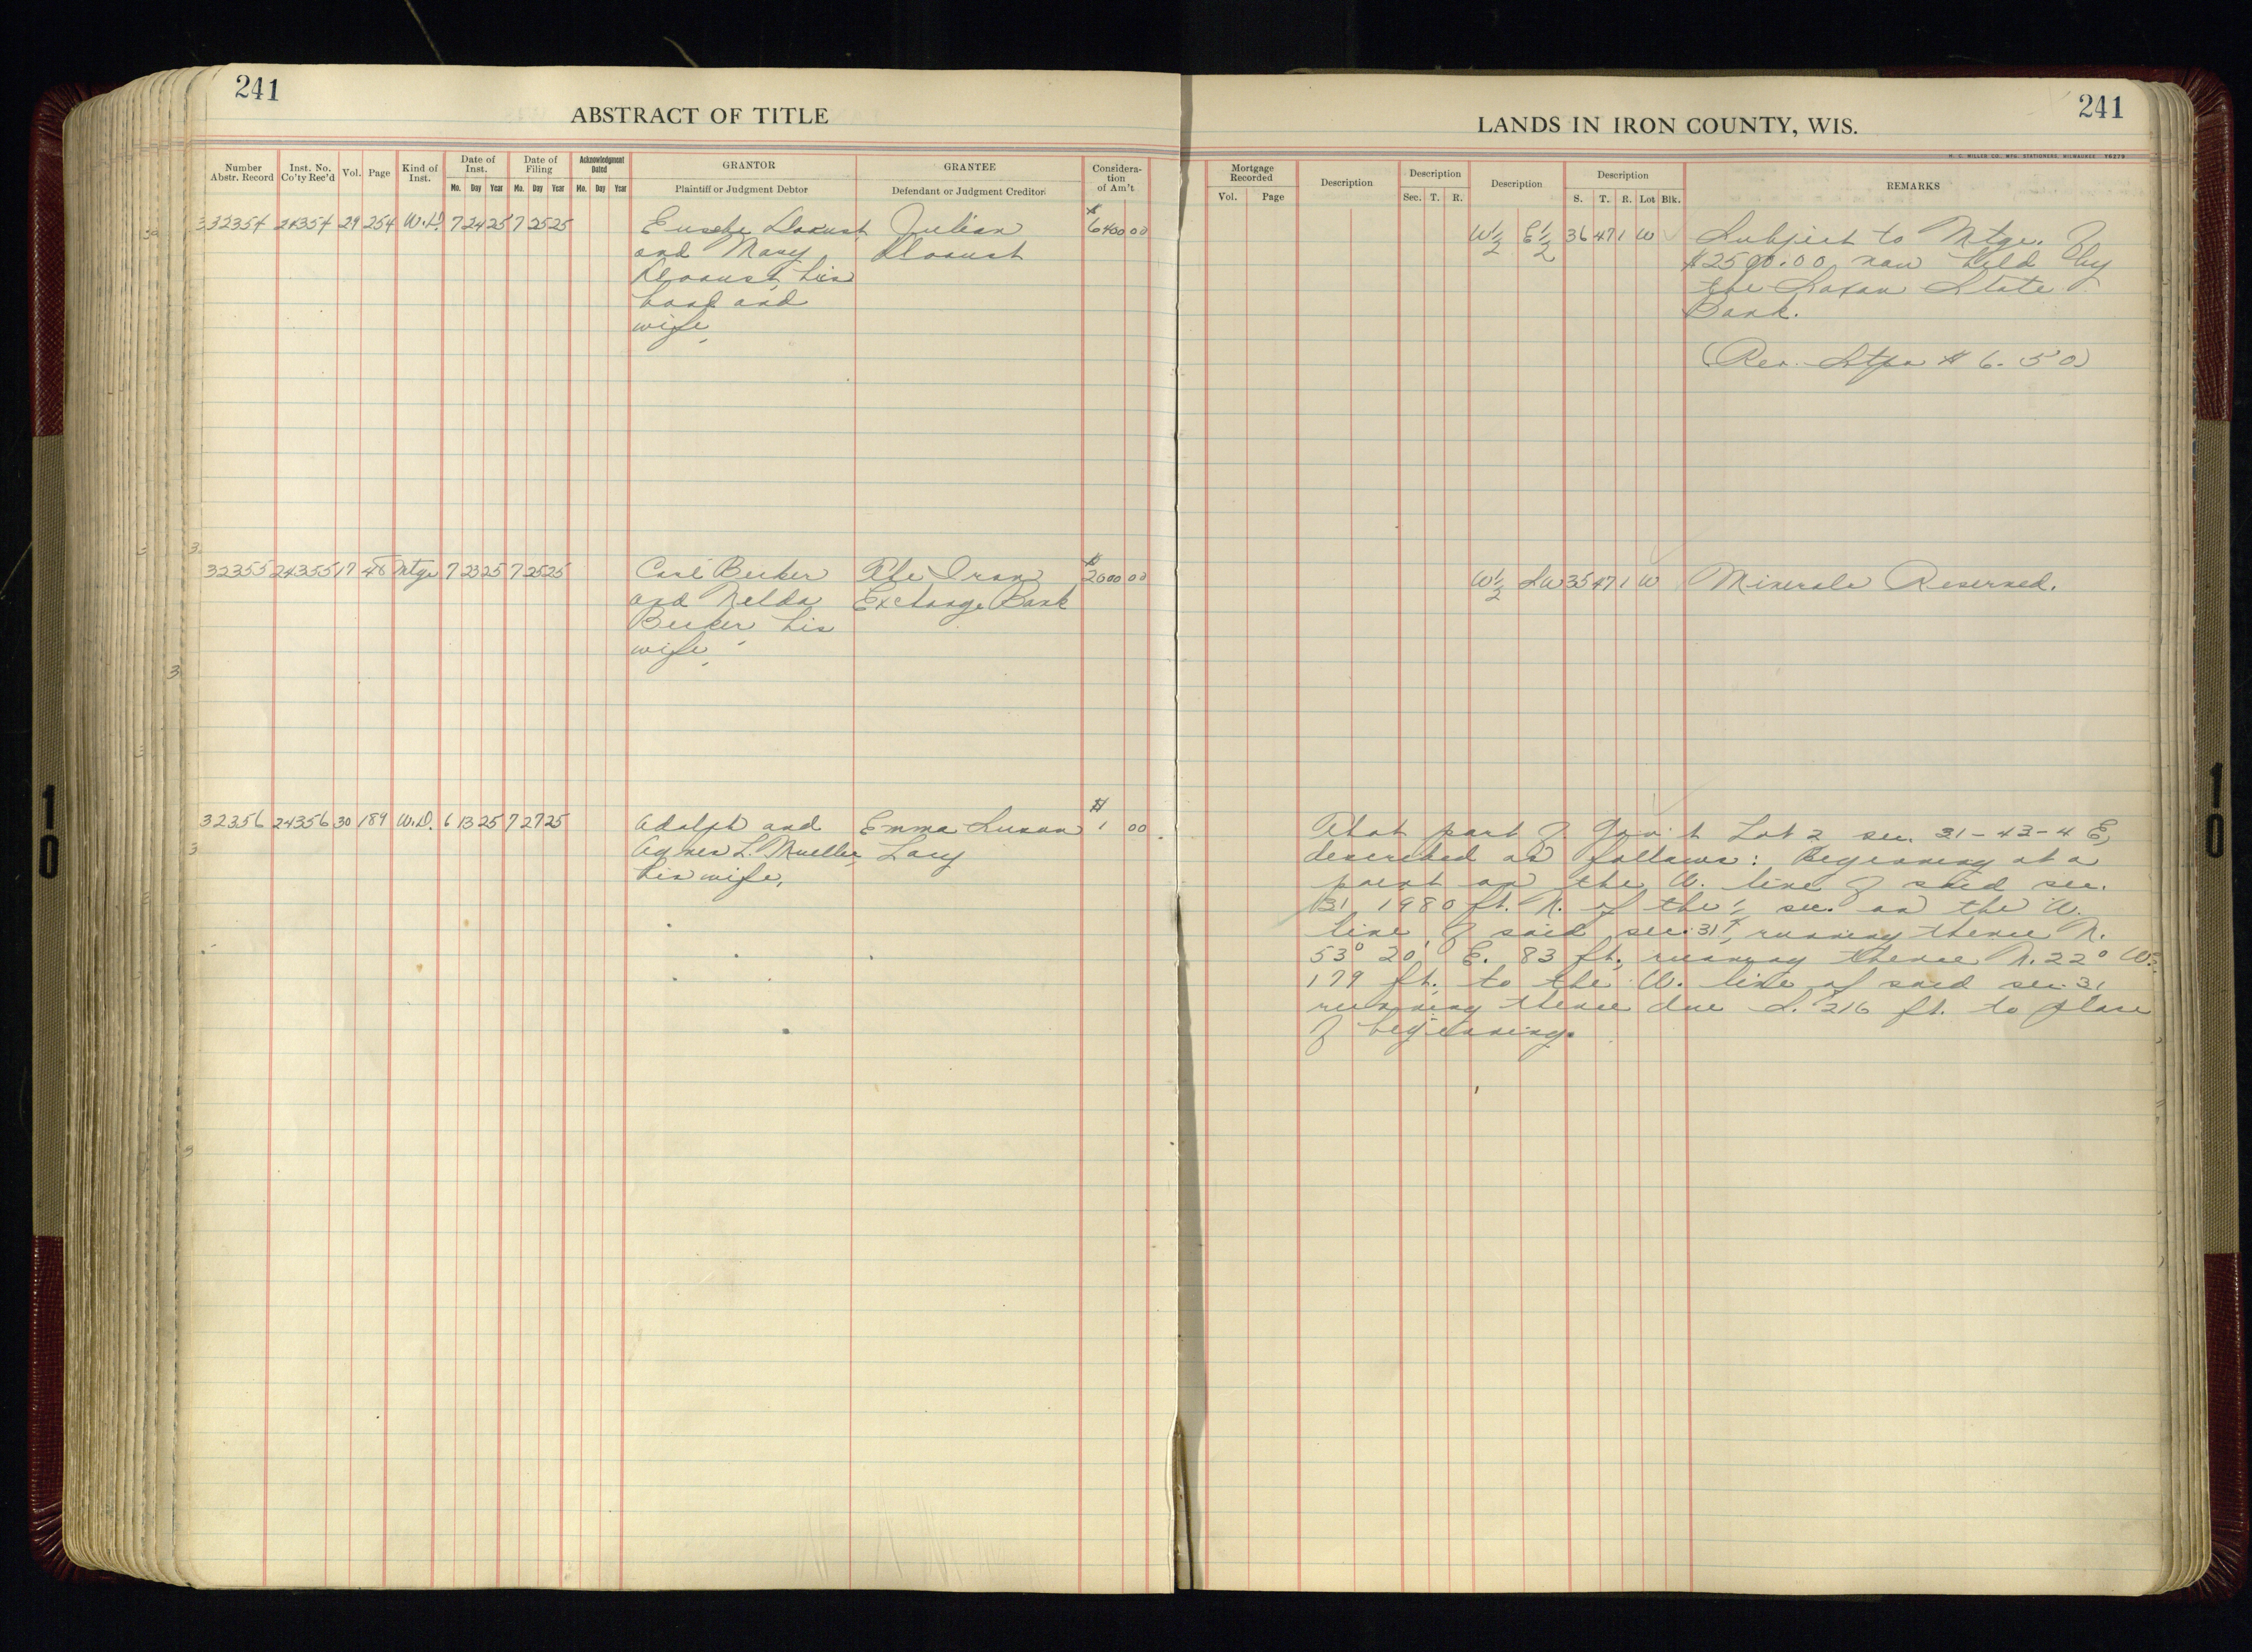 241
ABSTRACT OF TITLE
Number Abstr. Record Inst. No. Co'ty Rec'd Vol. Page Kind of Inst. Date of Inst. Mo. Day Year Date of Filing Mo. Day Year Acknowledgment Dated Mo. Day Year GRANTOR Plaintiff or Judgment Debtor GRANTEE Defendant or Judgment Creditor Considera-tion of Am't
32354 24354 29 254 W.D. 7 24 25 7 25 25 Eusebe Julian $6400 00
and Mary
his
band and
wife,
32355 24355 17 48 Mtge 7 23 25 7 25 25 Carl Becker The Iron $2000 00
and Nelda Exchange Bank
Becker his
wife,
32356 24356 30 189 W.D. 6 13 25 7 27 25 Adolph and Emma Susan $1 00
Agnes L. Mueller, Lacy
his wife,
241
LANDS IN IRON COUNTY, WIS.
H. C. MILLER CO., MFG. STATIONERS, MILWAUKEE Y6279
Mortgage Recorded Vol. Page Description Description Sec. T. R. Description Description S. T. R. Lot Blk. REMARKS
W 1/2 E 1/2 36 47 1 W Subject to Mtge. of
$2500.00 now held by
the Saxon State
Bank.
(Rev. Stps $6.50)
W 1/2 SW 35 47 1 W Minerals Reserved.
That part of Gov't Lot 2 sec. 31-43-4 E,
described as follows: Beginning at a
point on the W. line of said sec.
31, 1980 ft. N. of the 1/4 sec. on the W.
line of said sec. 31, running thence N.
53° 20' E. 83 ft., running thence N. 22° W.
179 ft. to the W. line of said sec. 31
running thence due S. 216 ft. to place
of beginning.
10
10